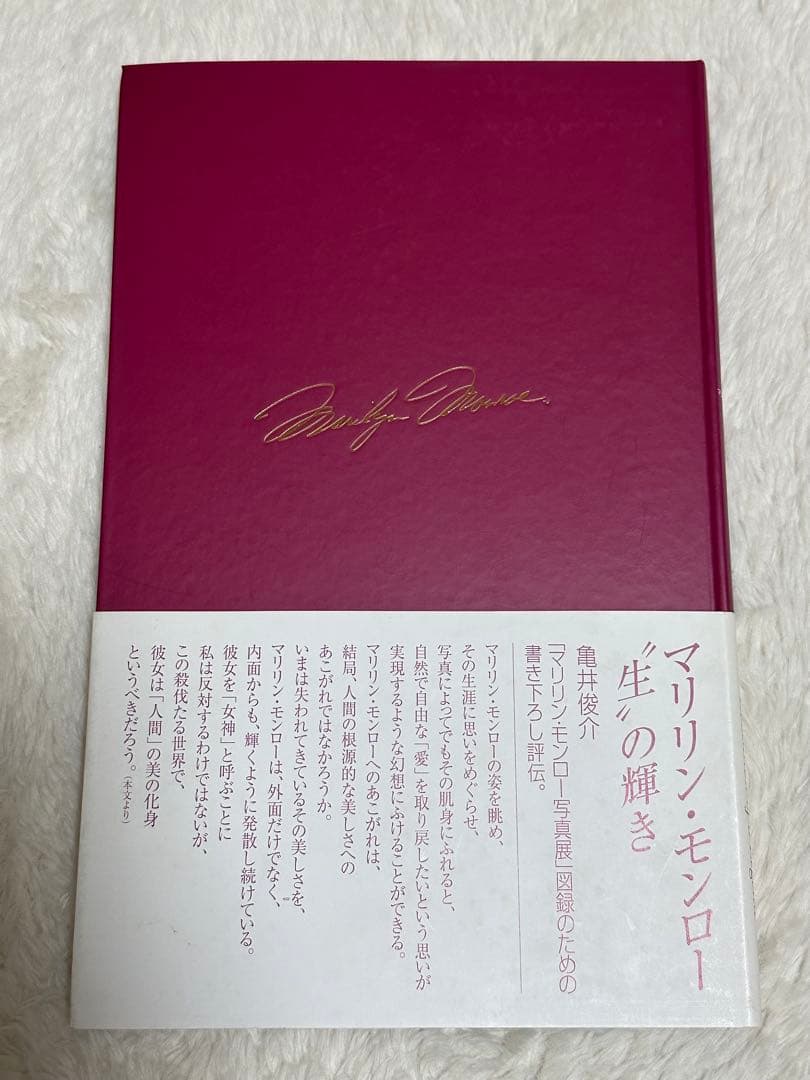 Marilyn Monroe
マリリン・モンロー
〝生〟の輝き
亀井俊介
「マリリン・モンロー写真展」図録のための
書き下ろし評伝。
マリリン・モンローの姿を眺め、
その生涯に思いをめぐらせ、
写真によってでもその肌身にふれると、
自然で自由な「愛」を取り戻したいという思いが
実現するような幻想にふけることができる。
マリリン・モンローへのあこがれは、
結局、人間の根源的な美しさへの
あこがれではなかろうか。
いまは失われてきているその美しさを、
マリリン・モンローは、外面だけでなく、
内面からも、輝くように発散し続けている。
彼女を「女神」と呼ぶことに
私は反対するわけではないが、
この殺伐たる世界で、
彼女は「人間」の美の化身
というべきだろう。(本文より)